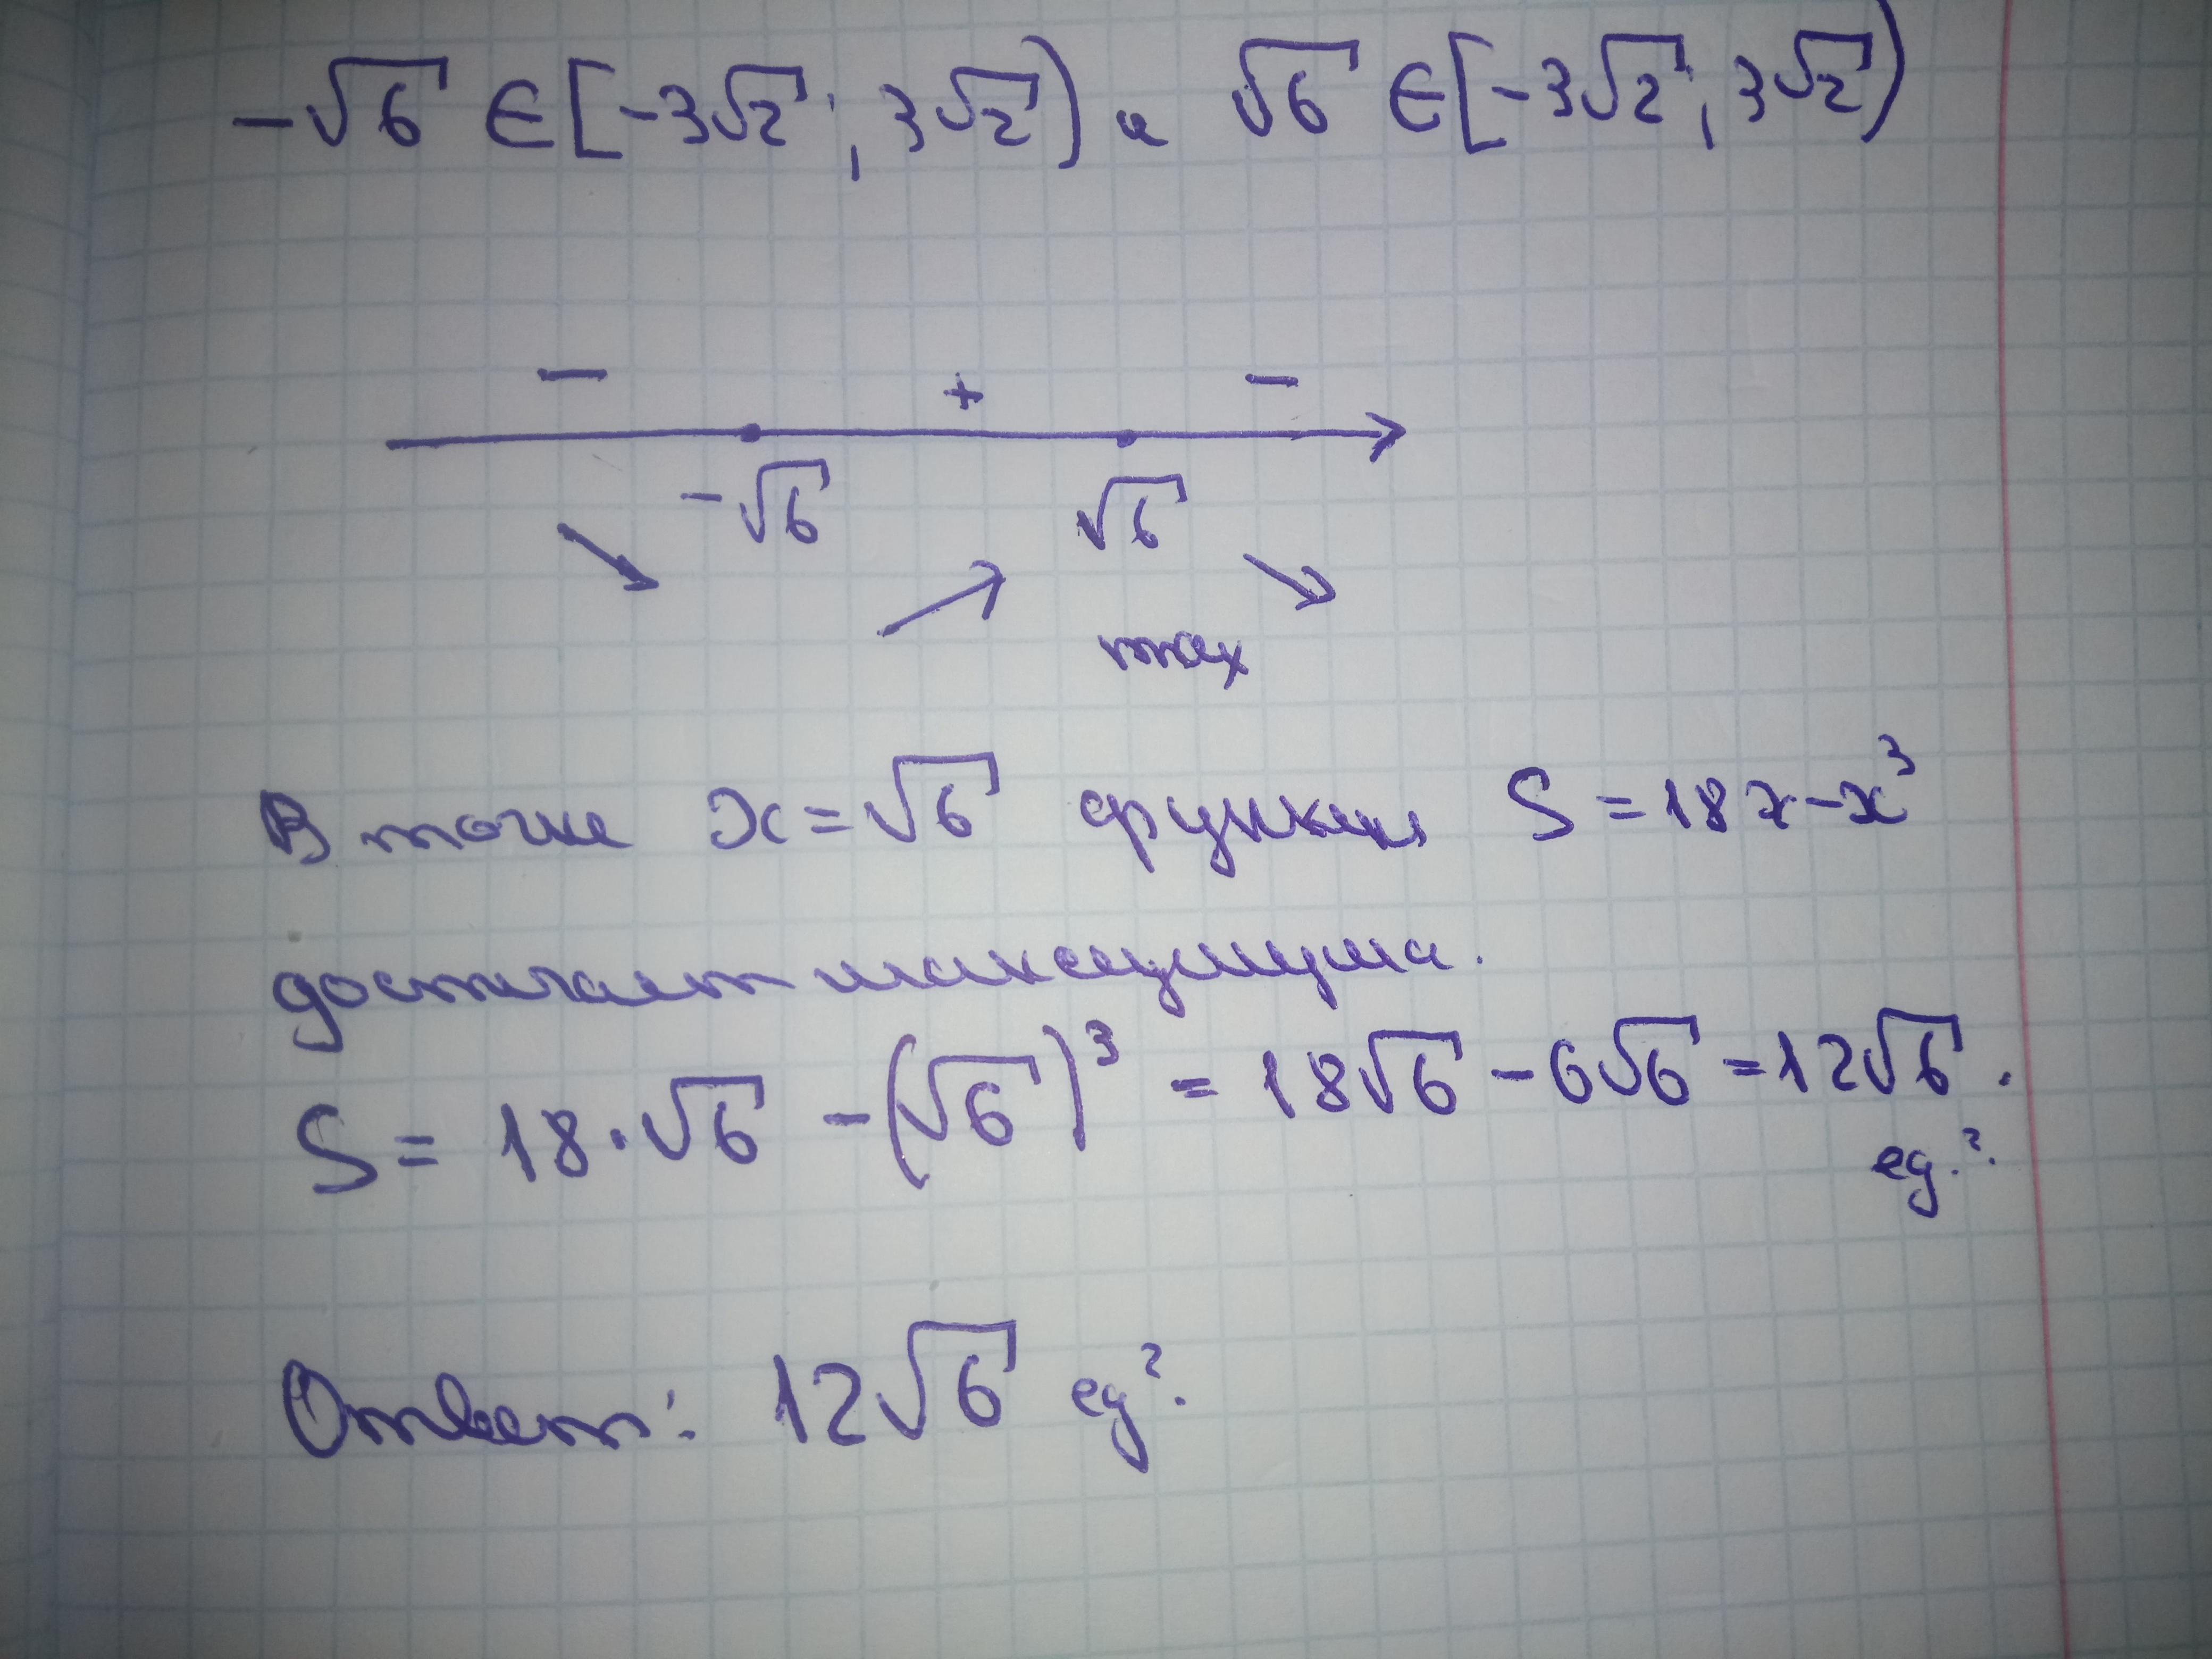 -√6 ∈ [-3√2; 3√2) и √6 ∈ [-3√2; 3√2)
- + -
-√6 √6
max
В точке x = √6 функция S = 18x - x³
достигает максимума.
S = 18·√6 - (√6)³ = 18√6 - 6√6 = 12√6.
ед.²
Ответ: 12√6 ед².